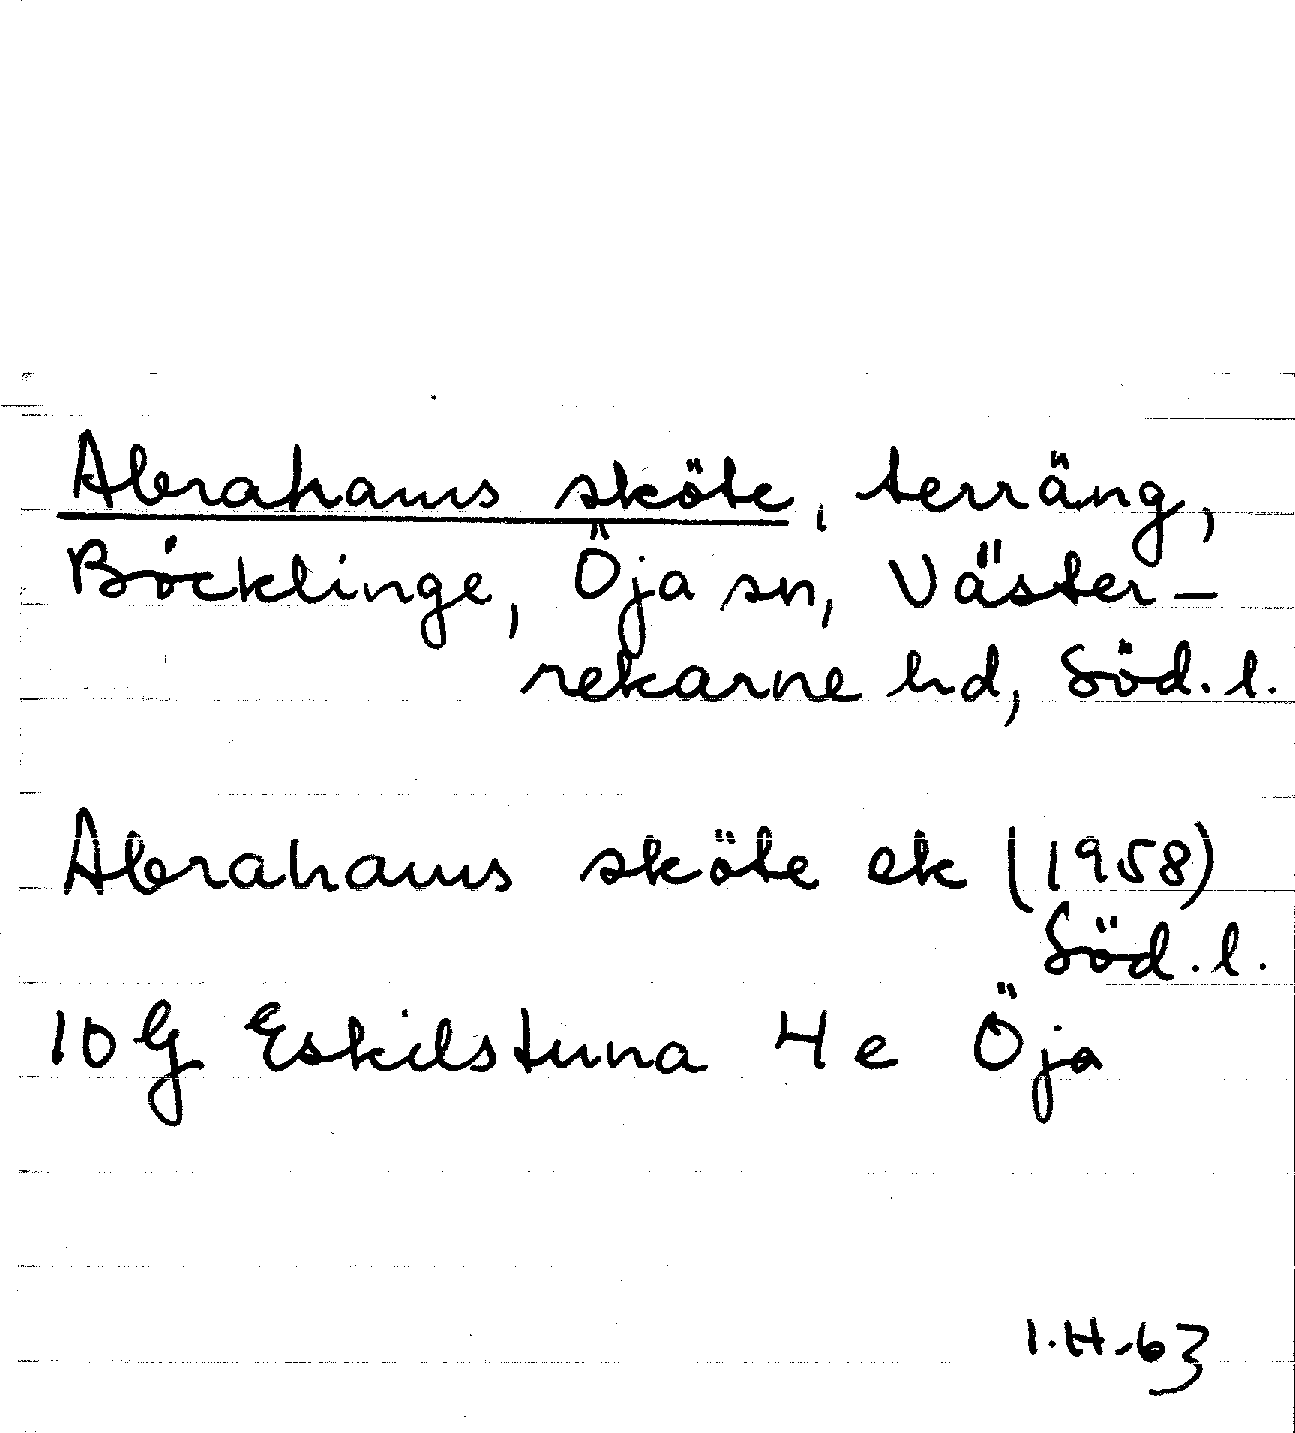 Abrahams sköte, terräng,
Böcklinge, Öja sn, Väster-
rekarne hd, Söd. l.
Abrahams sköte ek (1958)
Söd. l.
10 G Eskilstuna 4 e Öja
I.H.-63